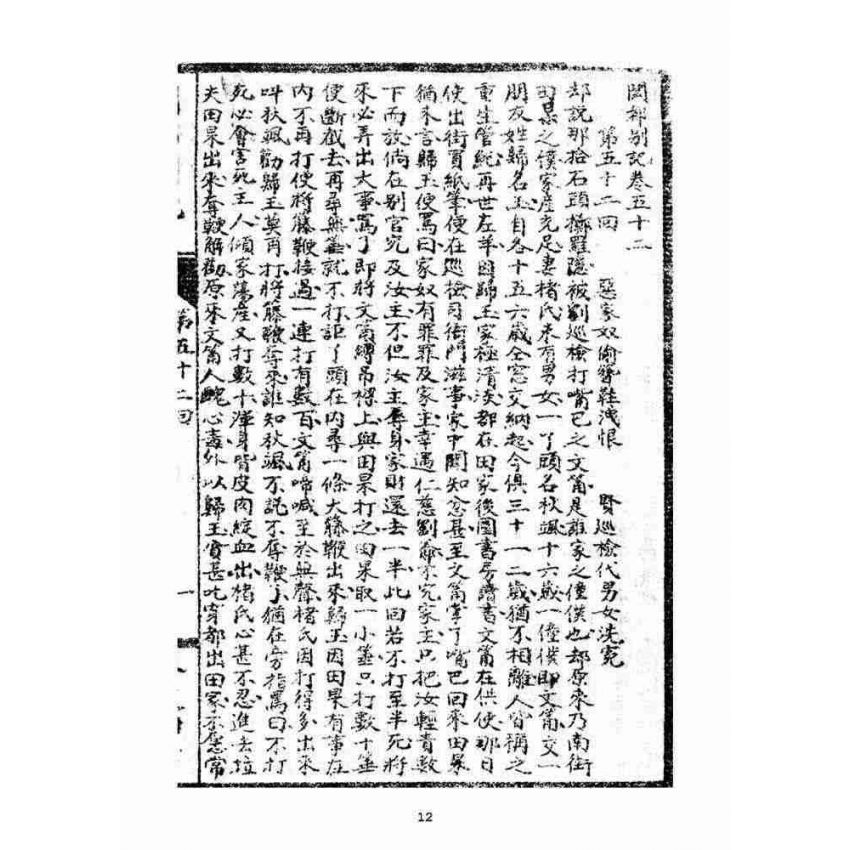 閩都别記卷五十二
第五十二回 惡家奴偷鴛鞋洩恨 賢巡檢代男女洗冤
却說那拾石頭擲羅隱被劉巡檢打嘴巴之文篇是誰家之僮僕也却原來乃南街
田杲之僕家産充足妻楮氏未有男女一丫頭名秋颯十六歲一僮僕即文篇交一
朋友姓歸名玉自各十五六歲仝窓交納起今俱三十一二歲猶不相離人皆稱之
重生管鮑再世左羊因歸玉家極清淡都在田家後園書房讀書文篇在供使那日
使出街買紙筆便在巡檢司衙門滋事家中聞知忿甚至文篇掌了嘴巴回來田杲
猶未言歸玉便罵曰家奴有罪罪及家主幸遇仁慈劉爺不究家主只把汝輕責數
下而放倘在别官究及汝主不但汝主辱身家財還去一半此回若不打至半死將
來必弄出大事罵了即將文篇縛吊樑上與田杲打之田杲取一小箠只打數十箠
便斷截去再尋無箠就不打詎丫頭在内尋一條大籐鞭出來歸玉因田杲有事在
内不再打便將籐鞭接過一連打有數百文篇啼喊至於無聲楮氏因打得多出來
叫秋颯勸歸玉莫再打將籐鞭奪來誰知秋颯不說不奪鞭了猶在旁指罵曰不打
死必會害死主人傾家蕩産又打數十渾身皆皮肉綻血出楮氏心甚不忍進去拉
夫田杲出來奪鞭解勸原來文篇人醜心毒外以歸玉貧甚吃穿都出田家不愿常
第五十二回
一
12